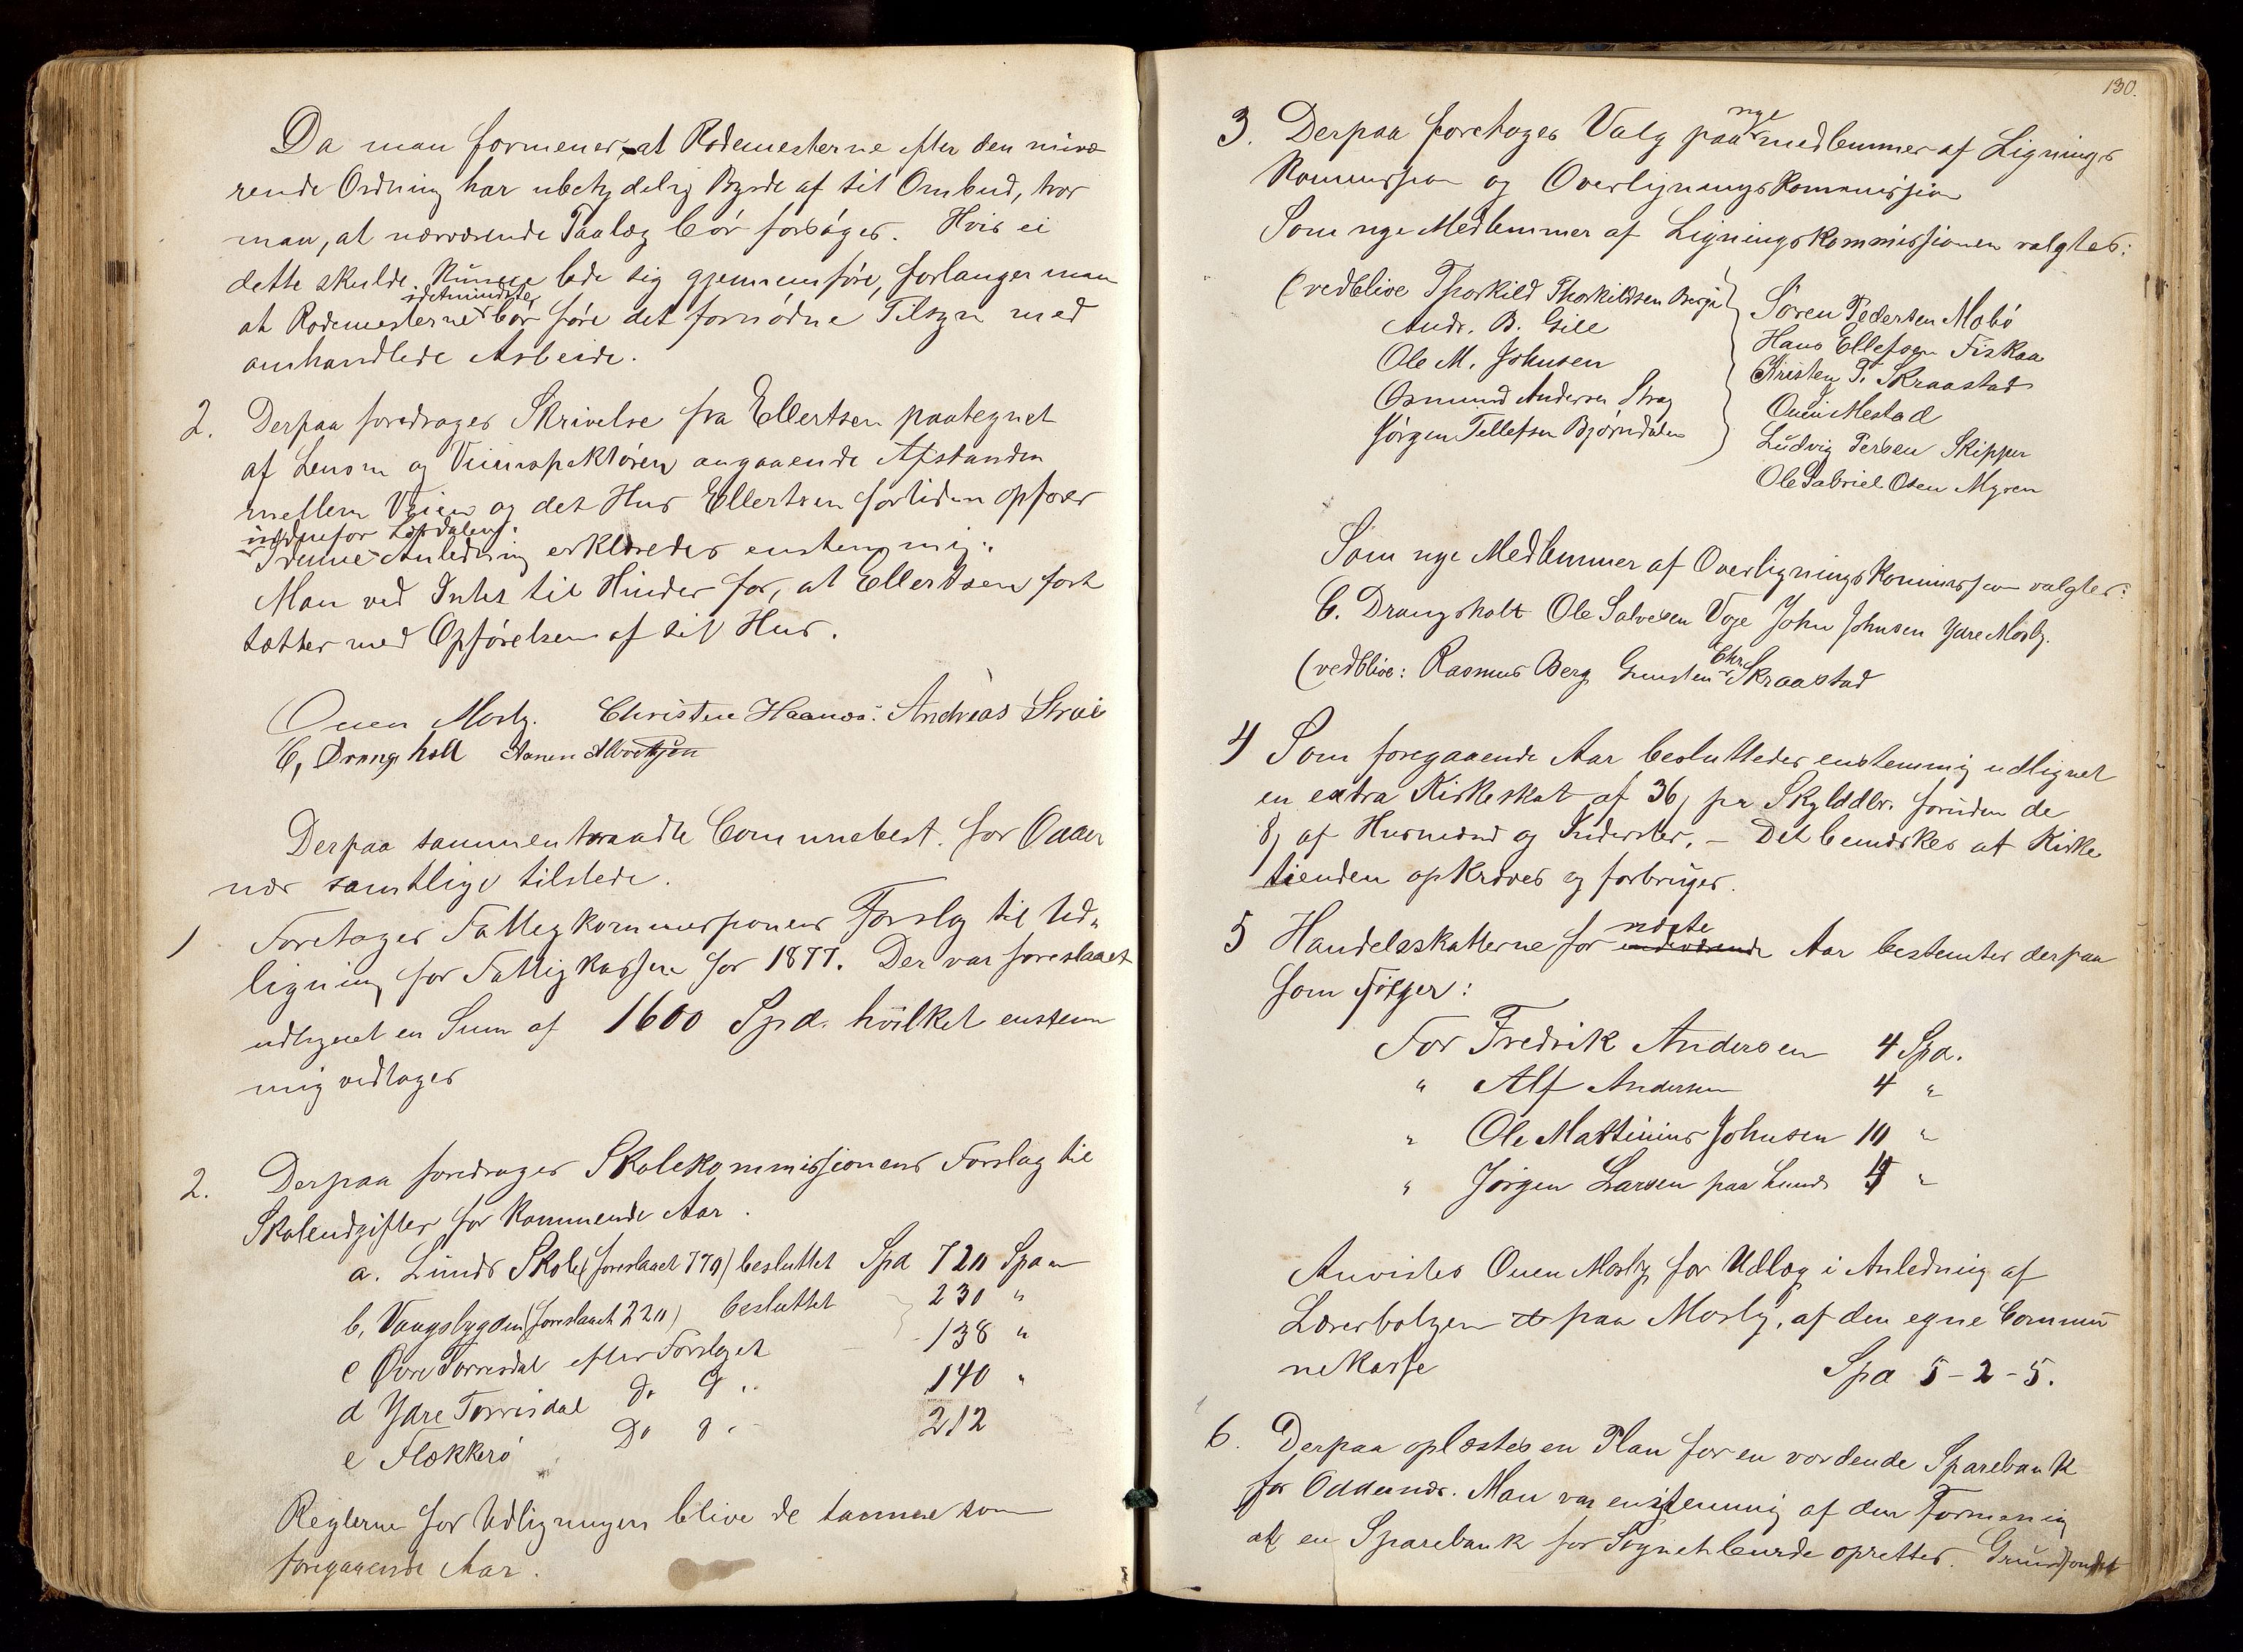 Da man formener, at Rodemesterne efter den nuvæ
rende Ordning har ubetydelig Byrde af sit Ombud, tror
man, at nærværende Paalæg bør forsøges. Hvis ei
dette skulde kunne lade sig gjennemføre, forlanger man
idetmindste
at Rodemesterne bør føre det fornødne Tilsyn med
omhandlede Arbeide.
2. Derpaa foredrages Skrivelse fra Ellertsen paategnet
af Lensm og Veiinspektøren angaaende Afstanden
mellem Veien og det Hus Ellertsen fortiden opfører
I denne Anledning erklæredes enstemmig:
Man ved Intet til Hinder for, at Ellertsen fort
sætter med Opførelsen af sit Hus.
Ouen Mosby. Christen Haanæs. Andreas Strai
C, Drangsholt Aanen
Derpaa sammentraadte Communebest. for Odder
nes samtlige tilstede.
1 Foretages Fattigkommissionens Forslag til Ud-
ligning for Fattigkassen for 1877. Der var foreslaaet
udlignet en Sum af 1600 Spd. hvilket enstem
mig vedtages
2. Derpaa foredrages Skolekommissionens Forslag til
Skoleudgifter for kommende Aar.
a. Lunds Skole (foreslaaet 770) besluttet Spd 720 Spd
b, Vaagsbygden (foreslaaet 220) besluttet 230 "
c Øvre Torrisdal efter Forslaget 138 "
d Ydre Torrisdal Do d. 140 "
e Flekkerø Do d. 212
Reglerne for Udligningen blive de samme som
foregaaende Aar.
130.
nye
3. Derpaa foretages Valg paa medlemmer af Lignings
kommission og Overligningskommission
Som nye Medlemmer af Ligningskommissionen valgtes:
(vedblive Thorkild Thorkildsen Berge
Andr. B. Gill
Ole M. Johnsen
Osmund Andersen Stray
Jørgen Tellefsen Bjørndalen
Søren Pedersen Mobø
Hans Ellefsen Fiskaa
Kristen T. Skraastad
Ouen Mestad
Ludvig Persen Skipper
Ole Gabriel Osen Myren
Som nye Medlemmer af Overligningskommission valgtes:
C. Drangsholt Ole Salvesen Voje John Johnsen Ydre Mosby.
Chr.
(vedblive: Rasmus Berg Gunsten Skraastad
4 Som foregaaende Aar besluttedes enstemmig udlignet
en extra Kirkeskat af 36 pr Skylddlr. foruden de
8 af Husmænd og Inderster. – Det bemærkes at Kirke
tienden opkræves og forbruges.
næste
5 Handelsskatterne for indeværende Aar bestemtes derpaa
som følger:
For Fredrik Andersen 4 Spd.
" Alf Andersen 4 "
" Ole Martinius Johnsen 10 "
" Jørgen Larsen paa Lund "
Anvistes Ouen Mosby for Udlæg i Anledning af
Lærerboligen paa Mosby, af den egne Commu
nekasse Spd 5-2-5.
6. Derpaa oplæstes en Plan for en vordende Sparebank
for Oddernes. Man var enstemmig af den Formening
at en Sparebank for Sognet burde oprettes. Grundfondet